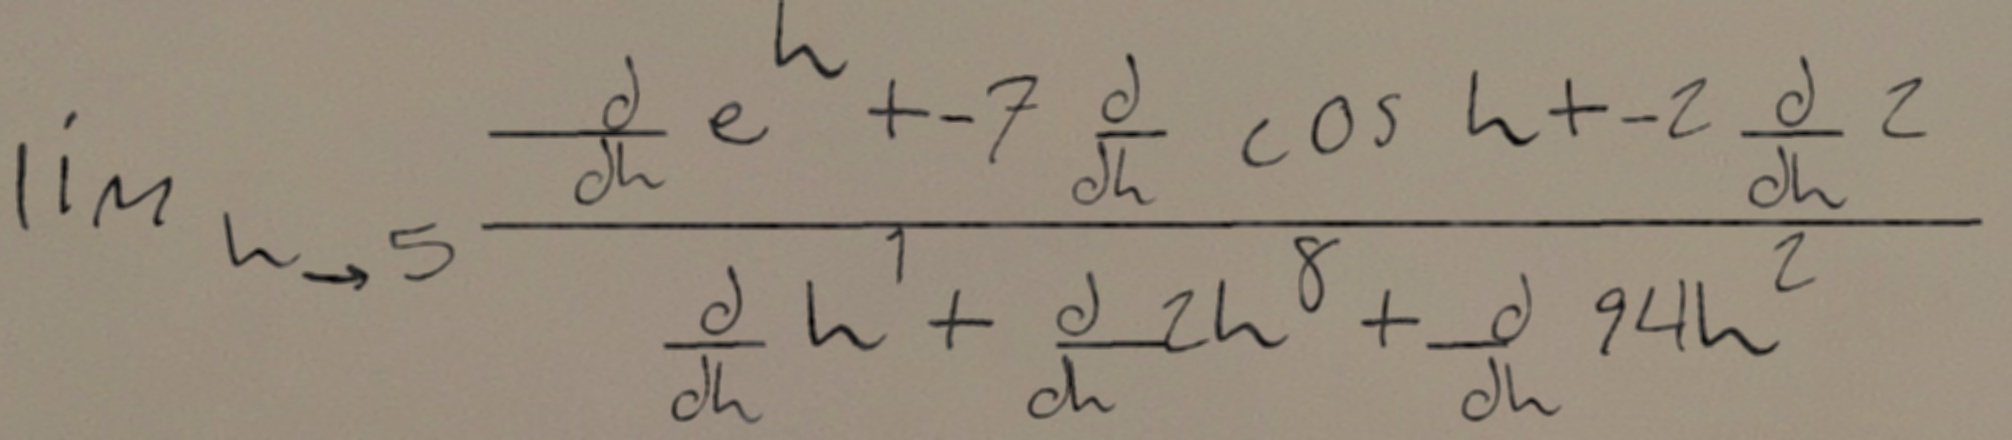 \lim_{h \to 5} \frac{\frac{d}{dh} e^{h} + -7 \frac{d}{dh} \cos h + -2 \frac{d}{dh} 2}{\frac{d}{dh} h^{1} + \frac{d}{dh} 2h^{8} + \frac{d}{dh} 94h^{2}}